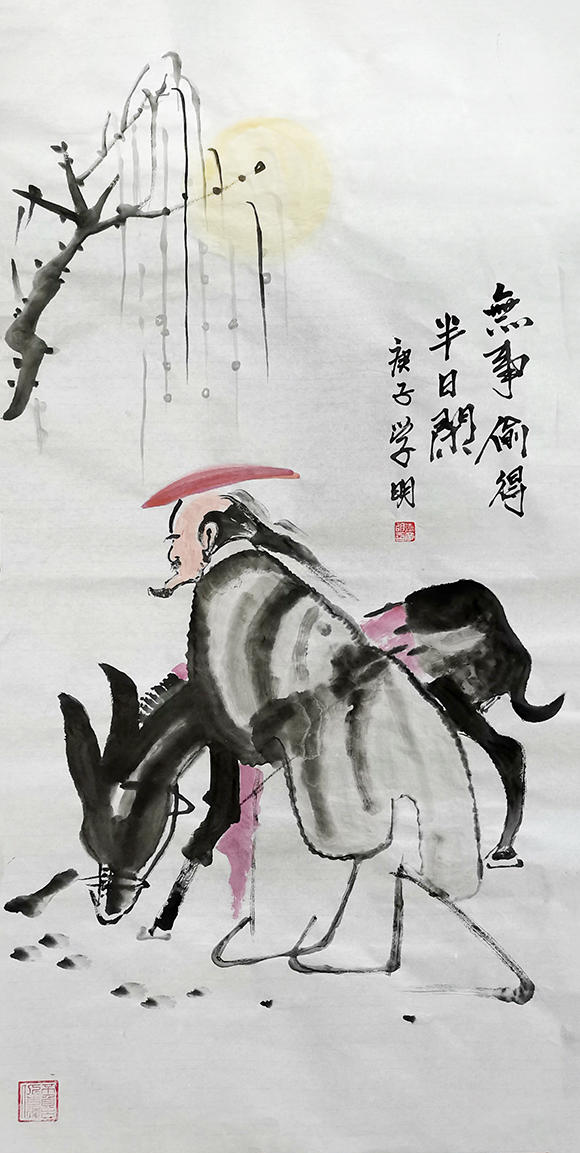 無事偷得
半日閑
庚子学明